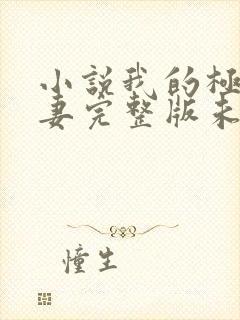 小説我的極
妻完整版未
憧生